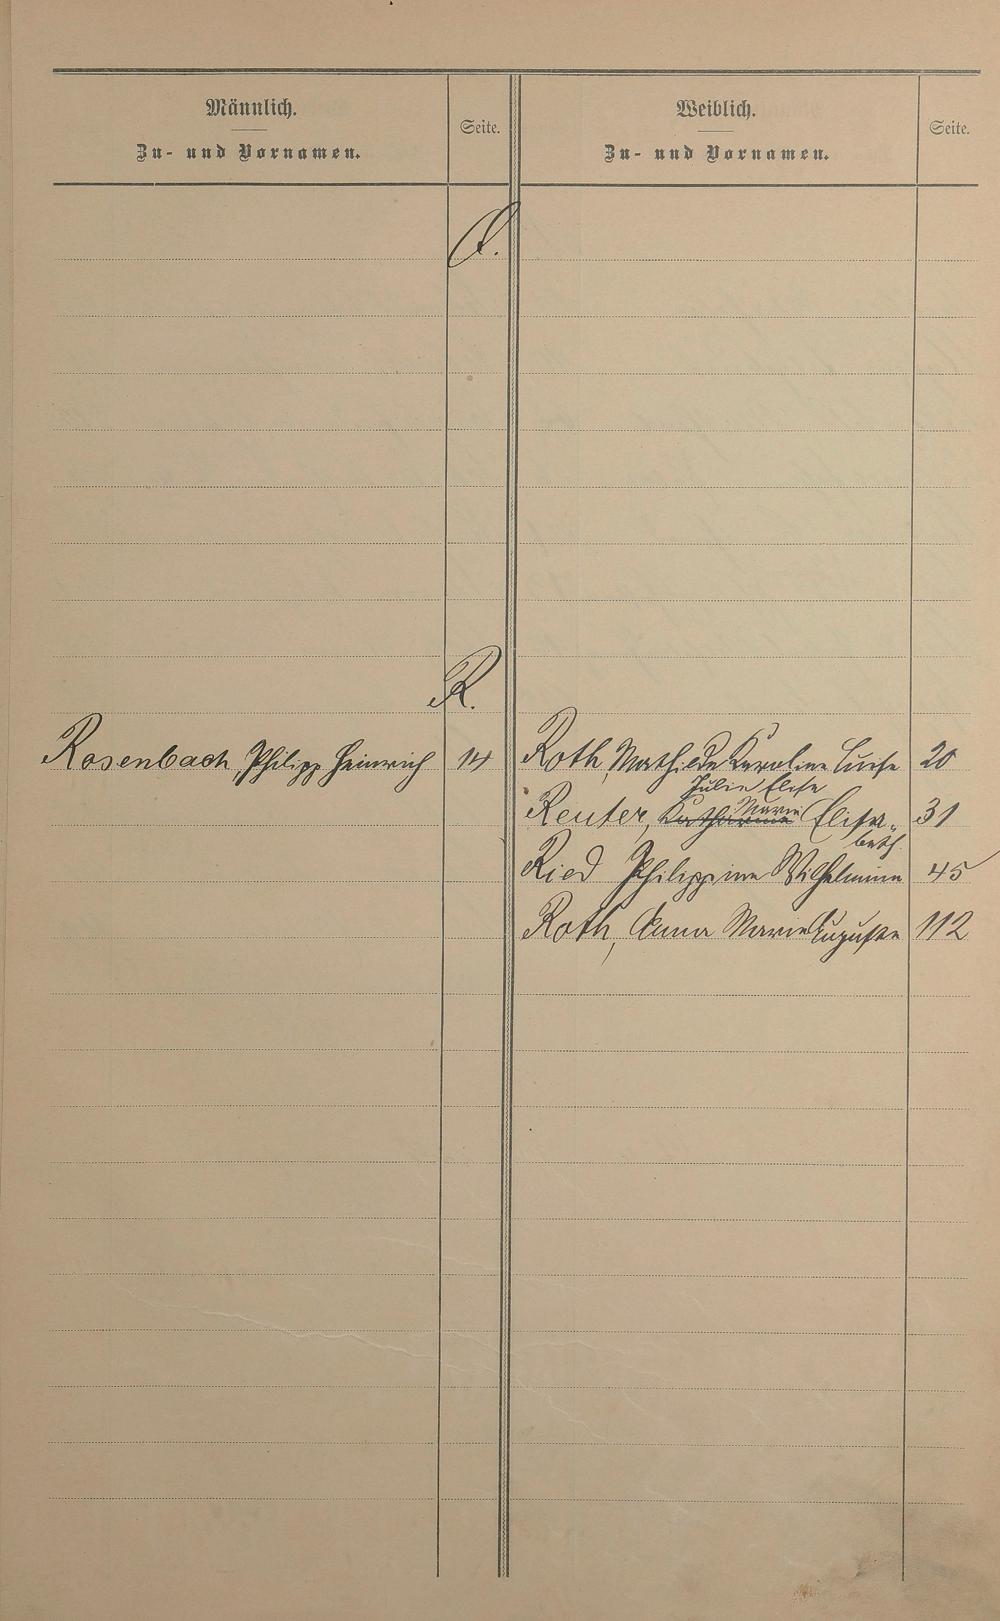 Männlich.
Zu- und Vornamen.
Seite.
Weiblich.
Zu- und Vornamen.
Seite.
Q.
R.
Rosenbach, Philipp Heinrich 14
Roth, Mathilde Karoline Luise 20
Julie Elise
Marie
Reuter, Katharina Elisa- 31
beth.
Ried Philippine Wilhelmine 45
Roth, Anna Marie Auguste 112